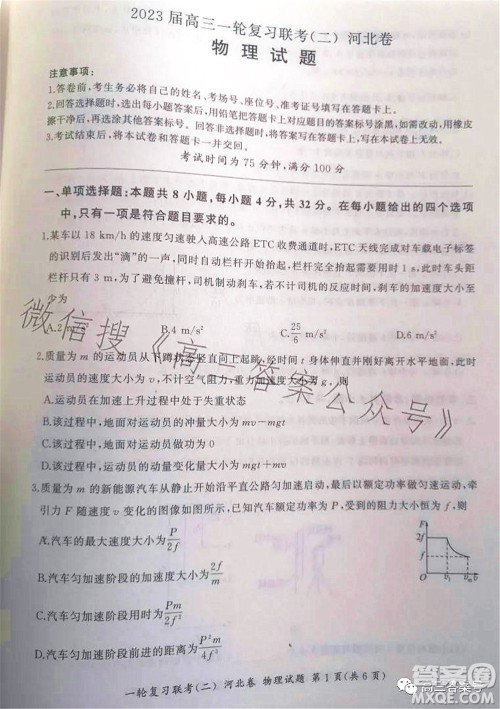 2023届高三一轮复习联考(二) 河北卷
物理试题
注意事项:
1.答卷前,考生务必将自己的姓名、考场号、座位号、准考证号填写在答题卡上。
2.回答选择题时,选出每小题答案后,用铅笔把答题卡对应题目的答案标号涂黑,如需改动,用橡皮
擦干净后,再选涂其他答案标号。回答非选择题时,将答案写在答题卡上,写在本试卷上无效。
3.考试结束后,将本试卷和答题卡一并交回。
考试时间为75分钟,满分100分
一、单项选择题:本题共8小题,每小题4分,共32分。在每小题给出的四个选项
中,只有一项是符合题目要求的。
1.某车以18 km/h的速度匀速驶入高速公路ETC收费通道时,ETC天线完成对车载电子标签
的识别后发出“滴”的一声,同时自动栏杆开始抬起,栏杆完全抬起需要用时1 s,此时车头距
栏杆只有3 m,为了避免撞杆,司机制动刹车,若不计司机的反应时间,刹车的加速度大小至
少为
A.2 m/s² B.4 m/s² C.25/6 m/s² D.6 m/s²
2.质量为m的运动员从下蹲状态竖直向上起跳,经时间t身体伸直并刚好离开水平地面,此时
运动员的速度大小为v,不计空气阻力,重力加速度大小为g。则
A.运动员在加速上升过程中处于失重状态
B.该过程中,地面对运动员的冲量大小为mv-mgt
C.该过程中,地面对运动员做功为0
D.该过程中,运动员的动量变化量大小为mgt+mv
3.质量为m的新能源汽车从静止开始沿平直公路匀加速启动,最后以额定功率匀速运动,牵
引力F随速度v变化的图像如图所示,已知汽车的额定功率为P,受到的阻力大小恒为f,则
A.汽车的最大速度大小为P/2f
B.汽车匀加速阶段的加速度大小为f/2m
C.汽车匀加速阶段用时为Pm/2f²
D.汽车匀加速阶段前进的距离为P²m/4f³
F
2f
f
0
v
一轮复习联考(二) 河北卷 物理试题 第1页(共6页)
微信搜《高三答案公众号》
高三答案号
答案圈